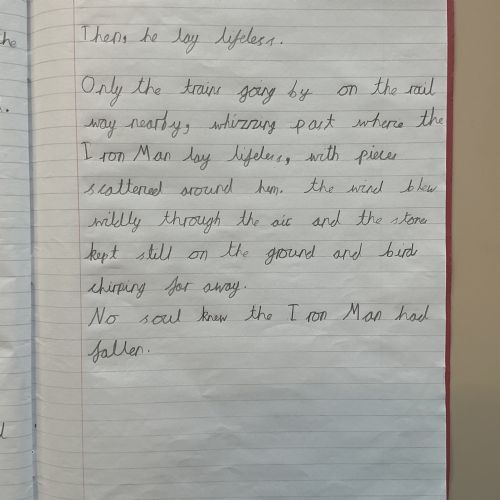 he
Then, he lay lifeless.
Only the trains going by on the rail
way nearby, whizzing past where the
Iron Man lay lifeless, with pieces
scattered around him. the wind blew
wildly through the air and the stones
kept still on the ground and birds
chirping far away.
No soul knew the Iron Man had
fallen.